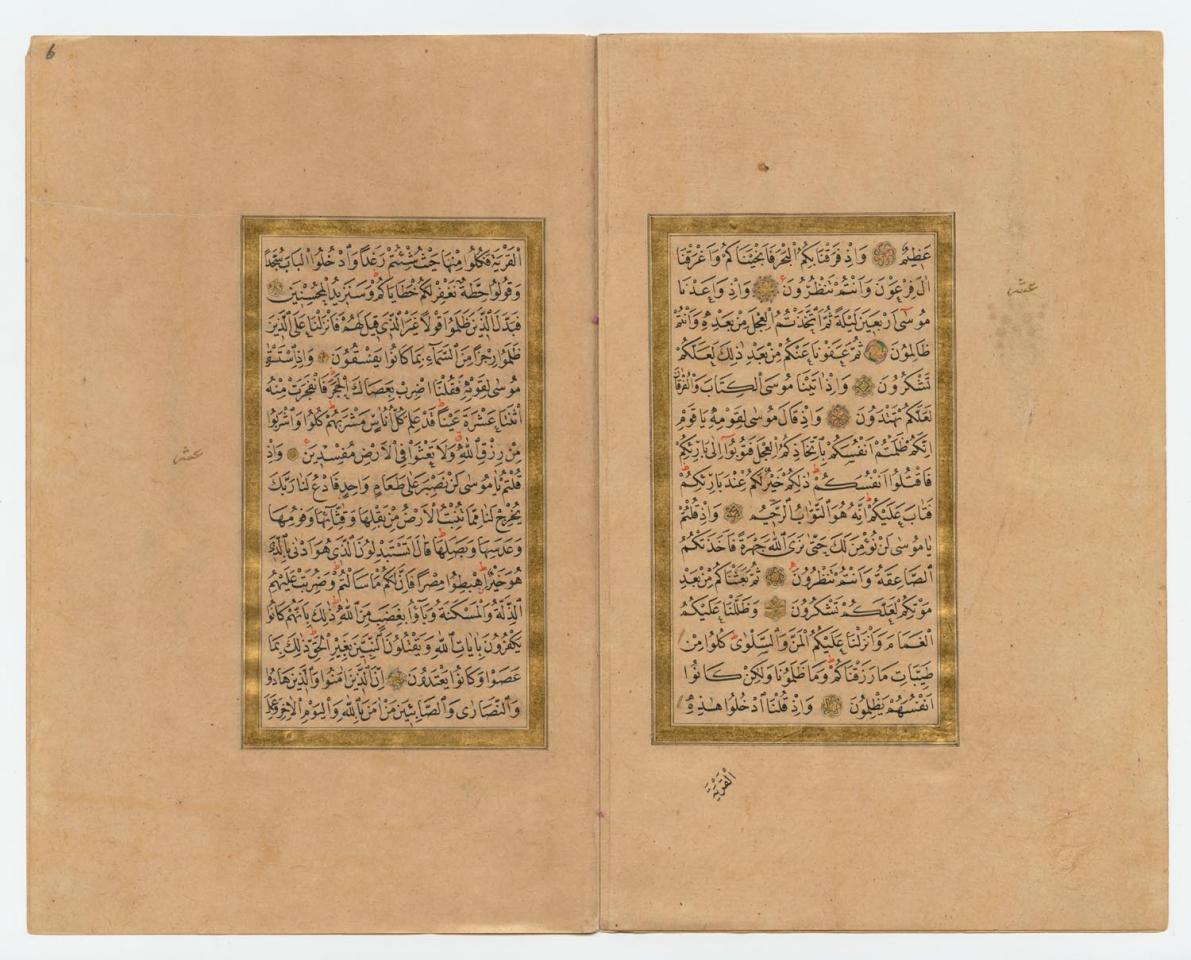 عَظِيمٌ وَاِذْ فَرَقْنَا بِكُمُ الْبَحْرَ فَاَنْجَيْنَاكُمْ وَاَغْرَقْنَا
اٰلَ فِرْعَوْنَ وَاَنْتُمْ تَنْظُرُونَ وَاِذْ وَاعَدْنَا
مُوسٰى اَرْبَعِينَ لَيْلَةً ثُمَّ اتَّخَذْتُمُ الْعِجْلَ مِنْ بَعْدِهِ وَاَنْتُمْ
ظَالِمُونَ ثُمَّ عَفَوْنَا عَنْكُمْ مِنْ بَعْدِ ذٰلِكَ لَعَلَّكُمْ
تَشْكُرُونَ وَاِذْ اٰتَيْنَا مُوسَى الْكِتَابَ وَالْفُرْقَانَ
لَعَلَّكُمْ تَهْتَدُونَ وَاِذْ قَالَ مُوسٰى لِقَوْمِهِ يَا قَوْمِ
اِنَّكُمْ ظَلَمْتُمْ اَنْفُسَكُمْ بِاتِّخَاذِكُمُ الْعِجْلَ فَتُوبُوا اِلٰى بَارِئِكُمْ
فَاقْتُلُوا اَنْفُسَكُمْ ذٰلِكُمْ خَيْرٌ لَكُمْ عِنْدَ بَارِئِكُمْ
فَتَابَ عَلَيْكُمْ اِنَّهُ هُوَ التَّوَّابُ الرَّحِيمُ وَاِذْ قُلْتُمْ
يَا مُوسٰى لَنْ نُؤْمِنَ لَكَ حَتّٰى نَرَى اللّٰهَ جَهْرَةً فَاَخَذَتْكُمُ
الصَّاعِقَةُ وَاَنْتُمْ تَنْظُرُونَ ثُمَّ بَعَثْنَاكُمْ مِنْ بَعْدِ
مَوْتِكُمْ لَعَلَّكُمْ تَشْكُرُونَ وَظَلَّلْنَا عَلَيْكُمُ
الْغَمَامَ وَاَنْزَلْنَا عَلَيْكُمُ الْمَنَّ وَالسَّلْوٰى كُلُوا مِنْ
طَيِّبَاتِ مَا رَزَقْنَاكُمْ وَمَا ظَلَمُونَا وَلٰكِنْ كَانُوا
اَنْفُسَهُمْ يَظْلِمُونَ وَاِذْ قُلْنَا ادْخُلُوا هٰذِهِ
الْقَرْيَةَ
عشر
6
الْقَرْيَةَ فَكُلُوا مِنْهَا حَيْثُ شِئْتُمْ رَغَدًا وَادْخُلُوا الْبَابَ سُجَّدًا
وَقُولُوا حِطَّةٌ نَغْفِرْ لَكُمْ خَطَايَاكُمْ وَسَنَزِيدُ الْمُحْسِنِينَ
فَبَدَّلَ الَّذِينَ ظَلَمُوا قَوْلًا غَيْرَ الَّذِي قِيلَ لَهُمْ فَاَنْزَلْنَا عَلَى الَّذِينَ
ظَلَمُوا رِجْزًا مِنَ السَّمَاءِ بِمَا كَانُوا يَفْسُقُونَ وَاِذِ اسْتَسْقٰى
مُوسٰى لِقَوْمِهِ فَقُلْنَا اضْرِبْ بِعَصَاكَ الْحَجَرَ فَانْفَجَرَتْ مِنْهُ
اثْنَتَا عَشْرَةَ عَيْنًا قَدْ عَلِمَ كُلُّ اُنَاسٍ مَشْرَبَهُمْ كُلُوا وَاشْرَبُوا
مِنْ رِزْقِ اللّٰهِ وَلَا تَعْثَوْا فِي الْاَرْضِ مُفْسِدِينَ وَاِذْ
قُلْتُمْ يَا مُوسٰى لَنْ نَصْبِرَ عَلٰى طَعَامٍ وَاحِدٍ فَادْعُ لَنَا رَبَّكَ
يُخْرِجْ لَنَا مِمَّا تُنْبِتُ الْاَرْضُ مِنْ بَقْلِهَا وَقِثَّائِهَا وَفُومِهَا
وَعَدَسِهَا وَبَصَلِهَا قَالَ اَتَسْتَبْدِلُونَ الَّذِي هُوَ اَدْنٰى بِالَّذِي
هُوَ خَيْرٌ اِهْبِطُوا مِصْرًا فَاِنَّ لَكُمْ مَا سَاَلْتُمْ وَضُرِبَتْ عَلَيْهِمُ
الذِّلَّةُ وَالْمَسْكَنَةُ وَبَاؤُا بِغَضَبٍ مِنَ اللّٰهِ ذٰلِكَ بِاَنَّهُمْ كَانُوا
يَكْفُرُونَ بِاٰيَاتِ اللّٰهِ وَيَقْتُلُونَ النَّبِيّٖنَ بِغَيْرِ الْحَقِّ ذٰلِكَ بِمَا
عَصَوْا وَكَانُوا يَعْتَدُونَ اِنَّ الَّذِينَ اٰمَنُوا وَالَّذِينَ هَادُوا
وَالنَّصَارٰى وَالصَّابِئِينَ مَنْ اٰمَنَ بِاللّٰهِ وَالْيَوْمِ الْاٰخِرِ وَعَمِلَ
عشر